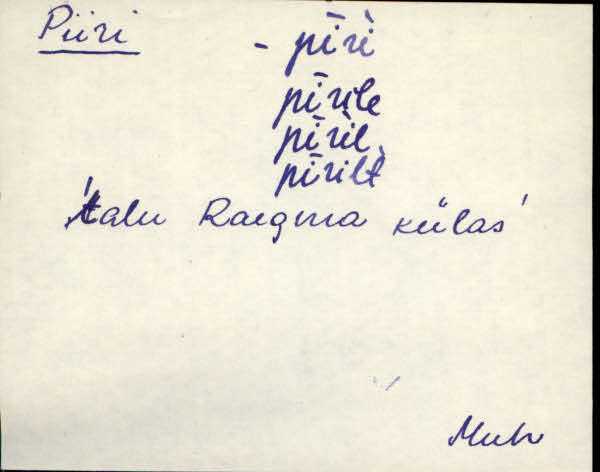 Piiri - pīri
pīrile
pīril
pīrilt
'talu Raegma külas'
Muh